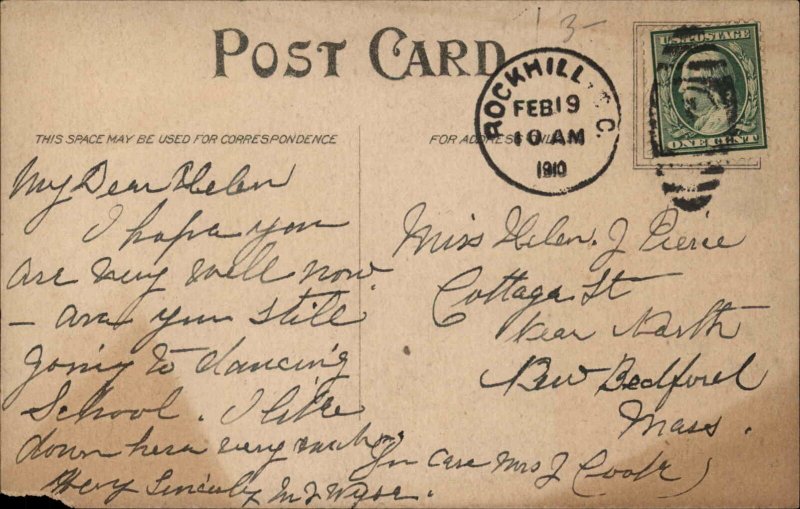 13-
POST CARD
ROCKHILL, S.C.
FEB 19
10 AM
1910
U.S. POSTAGE
ONE CENT
THIS SPACE MAY BE USED FOR CORRESPONDENCE
FOR ADDRESS ONLY
My Dear Helen
I hope you
are very well now
- are you still
going to dancing
School. I like
down here very much
Very Sincerely
Miss Helen. J Pierce
Cottage St
Near North
New Bedford
Mass.
In care Mrs J Cook